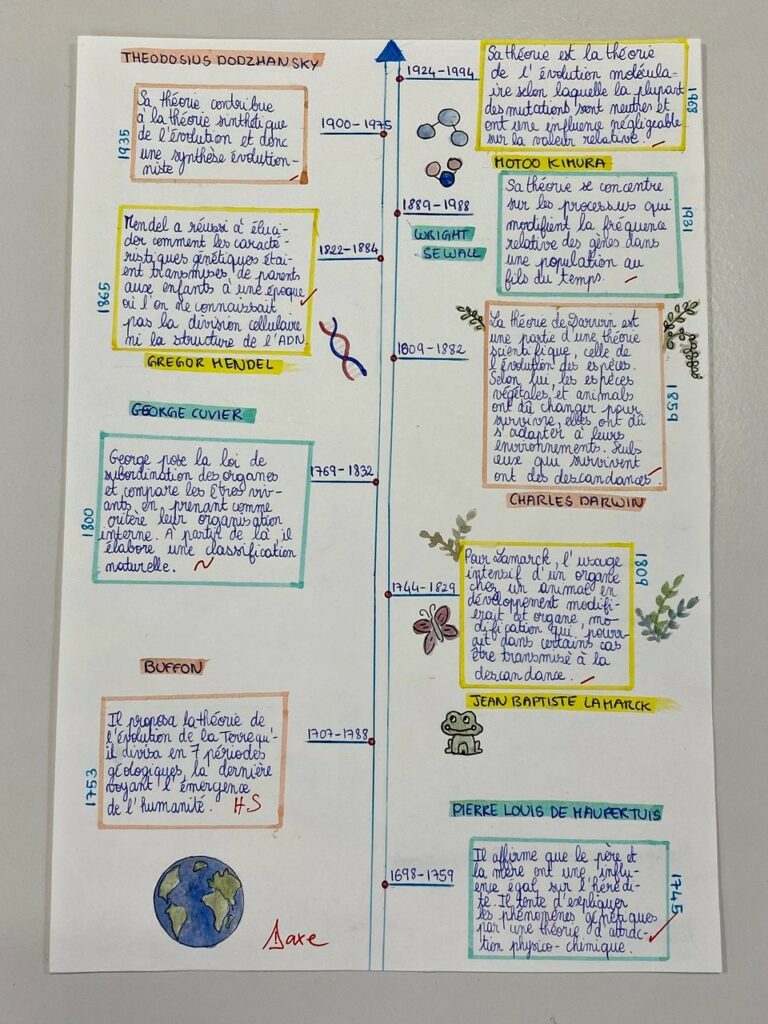 THEODOSIUS DODZHANSKY
1900-1975
1935
Sa théorie contribue
à la théorie sinthétique
de l'évolution et donc
une synthèse évolution-
niste
1924-1994
Sa théorie est la théorie
de l'évolution molécula-
ire selon laquelle la plupart
des mutations sont neutres et
ont une influence négligeable
sur la valeur relative.
1968
MOTOO KIMURA
1889-1988
WRIGHT
SEWALL
Sa théorie se concentre
sur les processus qui
modifient la fréquence
relative des gènes dans
une population au
fils du temps.
1931
1822-1884
1865
Mendel a réussi à élui-
der comment les caracté-
ristiques génétiques étai-
ent transmises, de parents
aux enfants à une époque
où l'on ne connaissait
pas la division cellulaire
ni la structure de l'ADN.
GREGOR MENDEL
1809-1882
La théorie de Darwin est
une partie d'une théorie
scientifique, celle de
l'évolution des espèces.
Selon lui, les espèces
végétales et animals
ont dû changer pour
survivre, elles ont dû
s'adapter à leurs
environnements. Seuls
ceux qui survivent
ont des descandances.
1859
CHARLES DARWIN
GEORGE CUVIER
1769-1832
1800
George pose la loi de
subordination des organes
et compare les êtres viv-
ants en prenant comme
critère leur organisation
interne. A partir de là, il
élabore une classification
naturelle.
1744-1829
Pour Lamarck, l'usage
intensif d'un organe
chez un animal en
développement modifi-
erait cet organe, mo-
dification qui pourr-
ait dans certains cas
être transmise à la
descandance.
1809
JEAN BAPTISTE LAMARCK
BUFFON
1707-1788
1753
Il proposa la théorie de
l'évolution de la Terre qu'
il divisa en 7 périodes
géologiques, la dernière
voyant l'émergence
de l'humanité. H.S
PIERRE LOUIS DE MAUPERTUIS
1698-1759
Il affirme que le père et
la mère ont une influ-
ence égal sur l'hérédi-
té. Il tente d'expliquer
les phénomènes génétiques
par une théorie d'attrac-
tion physico-chimique.
1745